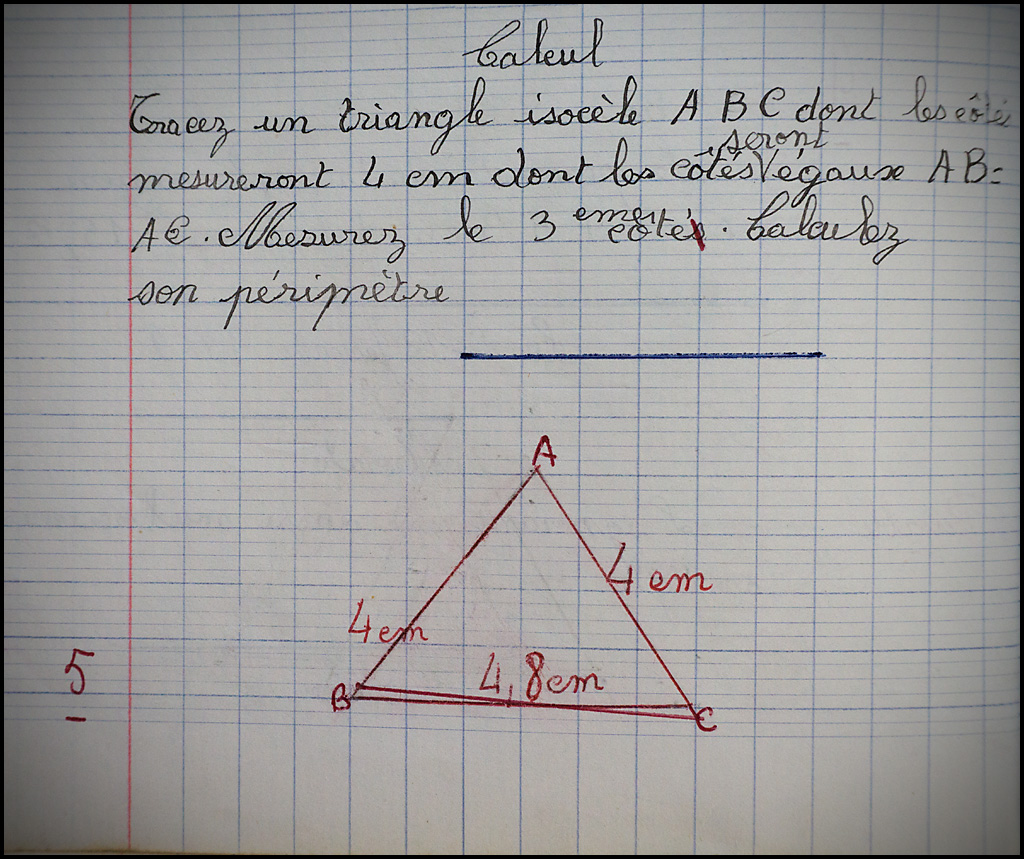 Calcul
Tracez un triangle isocèle A B C dont les côtés
seront
mesureront 4 cm dont les côtés V égaux AB =
AC. Mesurez le 3 eme côté. Calculez
son périmètre
A
4 cm
4 cm
4,8 cm
5
B
C